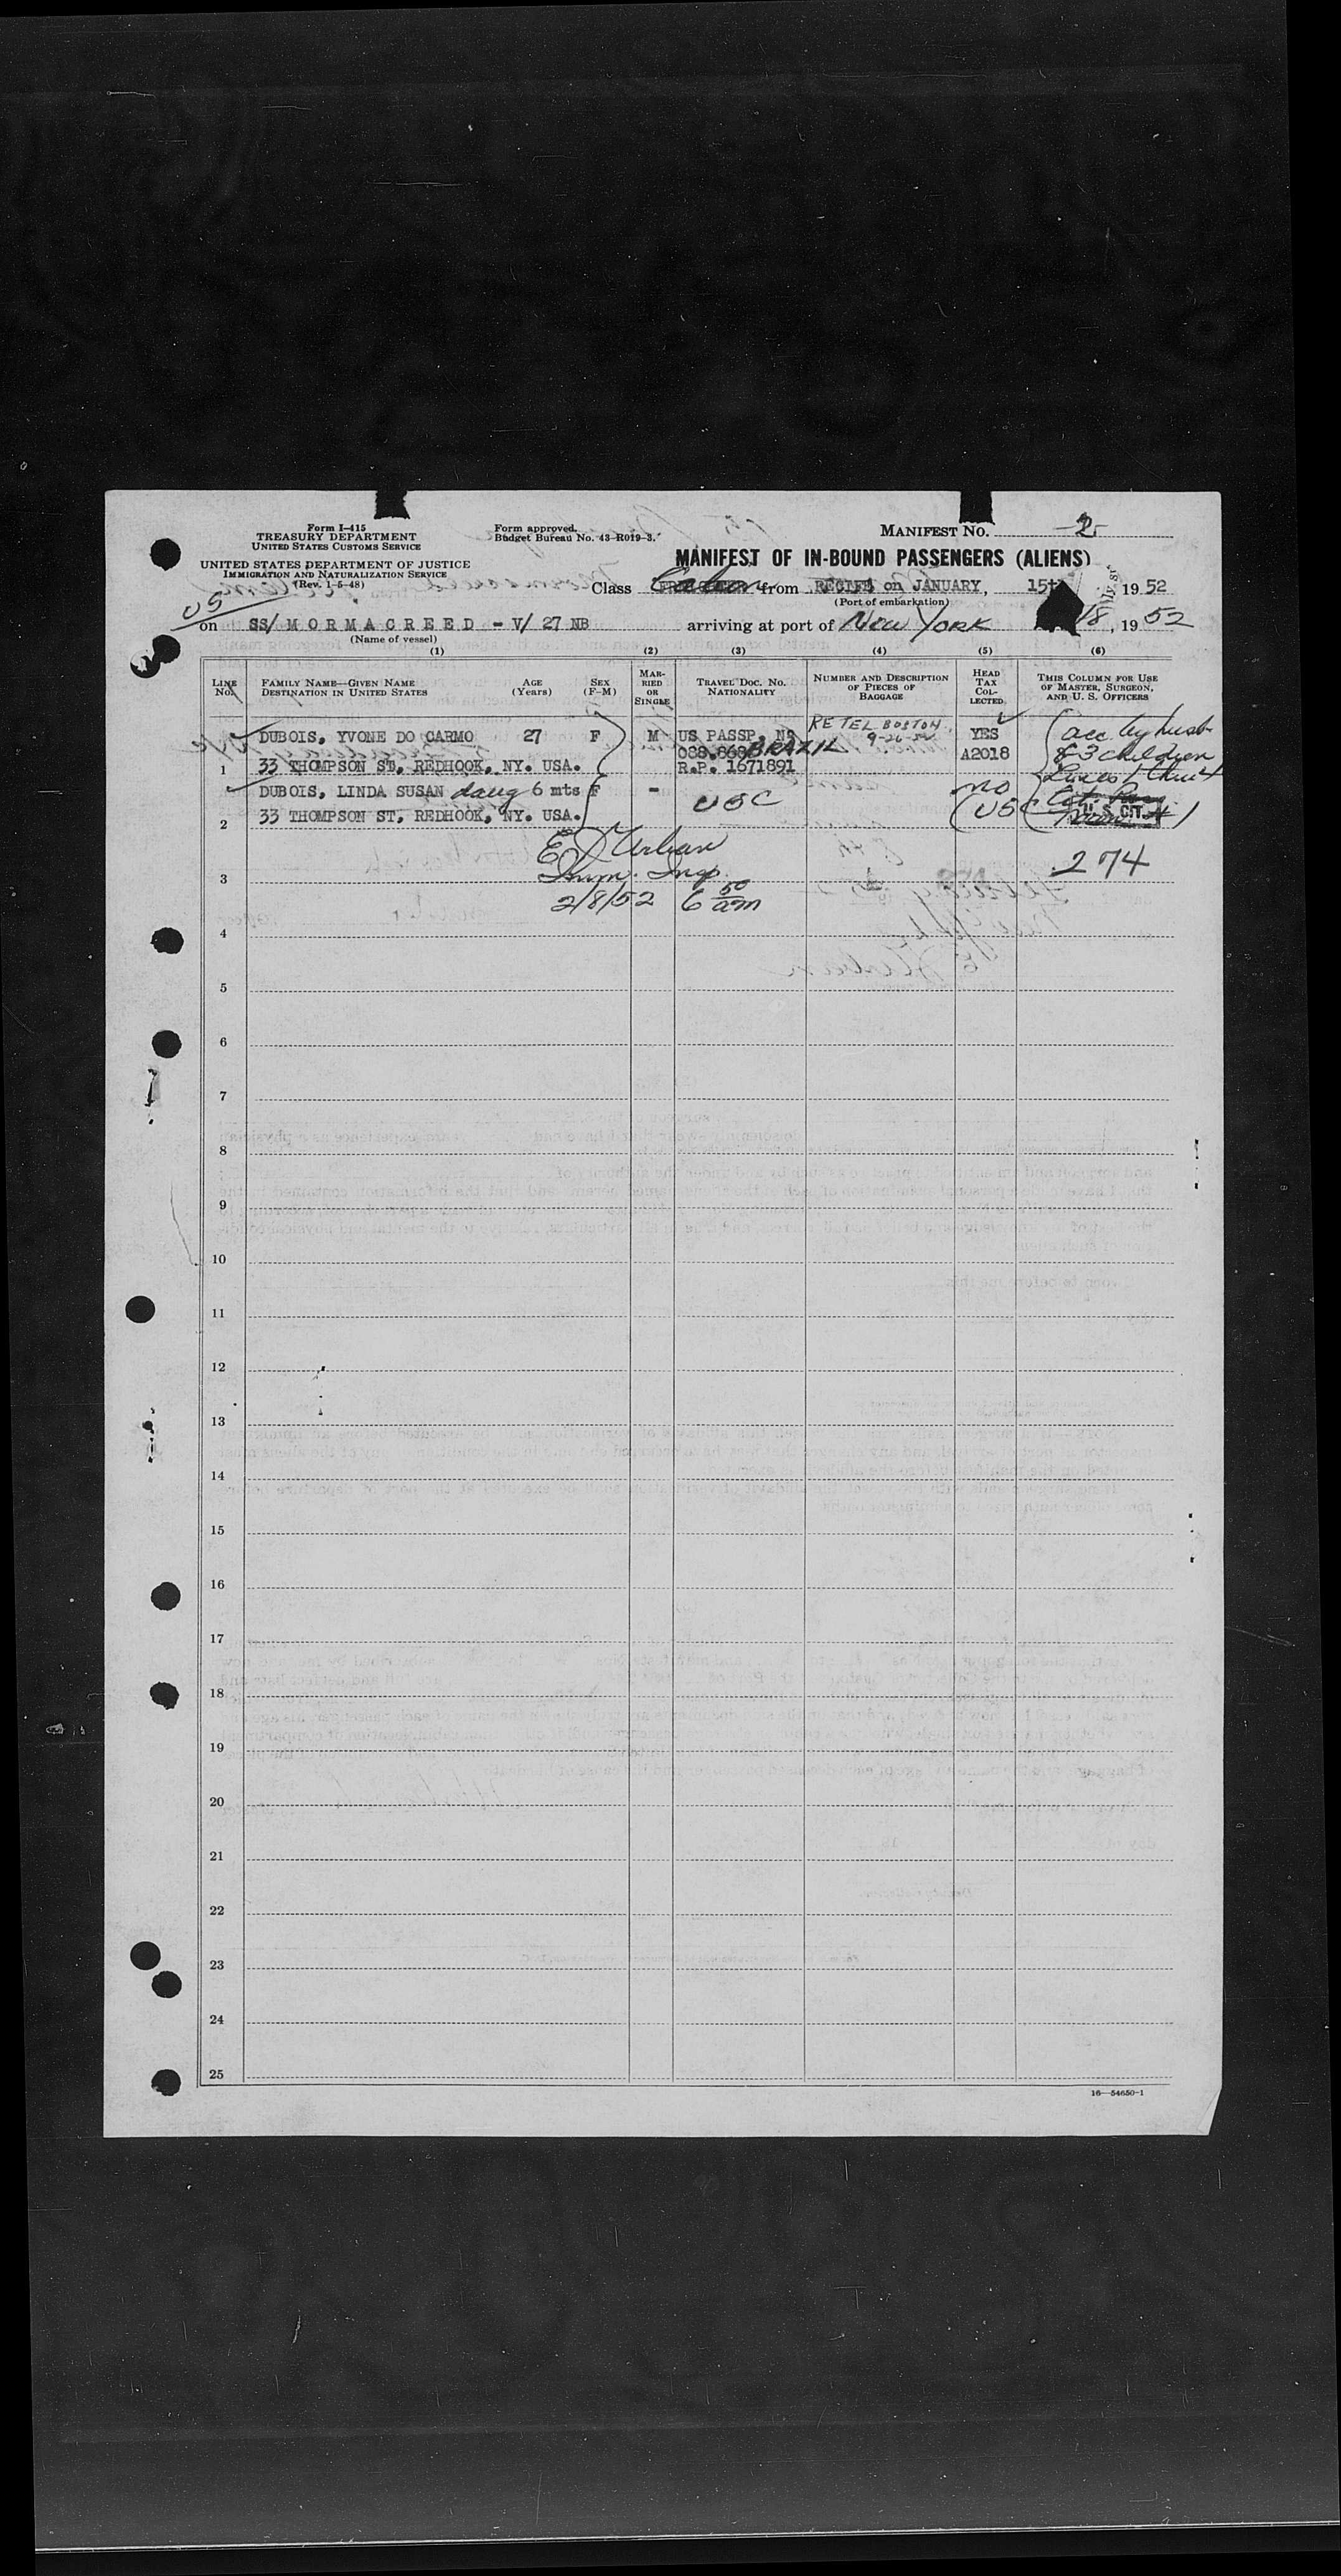 Form I-415
TREASURY DEPARTMENT
UNITED STATES CUSTOMS SERVICE
UNITED STATES DEPARTMENT OF JUSTICE
IMMIGRATION AND NATURALIZATION SERVICE
(Rev. 1-5-48)
Form approved.
Budget Bureau No. 43-R019-3.
MANIFEST NO. 2
MANIFEST OF IN-BOUND PASSENGERS (ALIENS)
Class Cabin from RECIFE on JANUARY, 15th, 1952
(Port of embarkation)
US
on SS/ MORMACREED - V/ 27 NB arriving at port of New York 18, 1952
(Name of vessel)
(1) (2) (3) (4) (5) (6)
LINE NO. FAMILY NAME—GIVEN NAME DESTINATION IN UNITED STATES AGE (Years) SEX (F-M) MARRIED OR SINGLE TRAVEL DOC. NO. NATIONALITY NUMBER AND DESCRIPTION OF PIECES OF BAGGAGE HEAD TAX COLLECTED THIS COLUMN FOR USE OF MASTER, SURGEON, AND U. S. OFFICERS
RE TEL BOSTON
DUBOIS, YVONE DO CARMO 27 F M US PASSP. Nº 9-26-52 YES acc by husb
BRAZIL A2018 & 3 children
1 33 THOMPSON ST, REDHOOK, NY. USA. R.P. 1671891
DUBOIS, LINDA SUSAN daug 6 mts F - USC no
2 33 THOMPSON ST, REDHOOK, NY. USA. (USC U.S. CIT.
E Urban
3 Imm. Insp. 274
2/8/52 6 50 am
4
5
6
7
8
9
10
11
12
13
14
15
16
17
18
19
20
21
22
23
24
25
16—54650-1